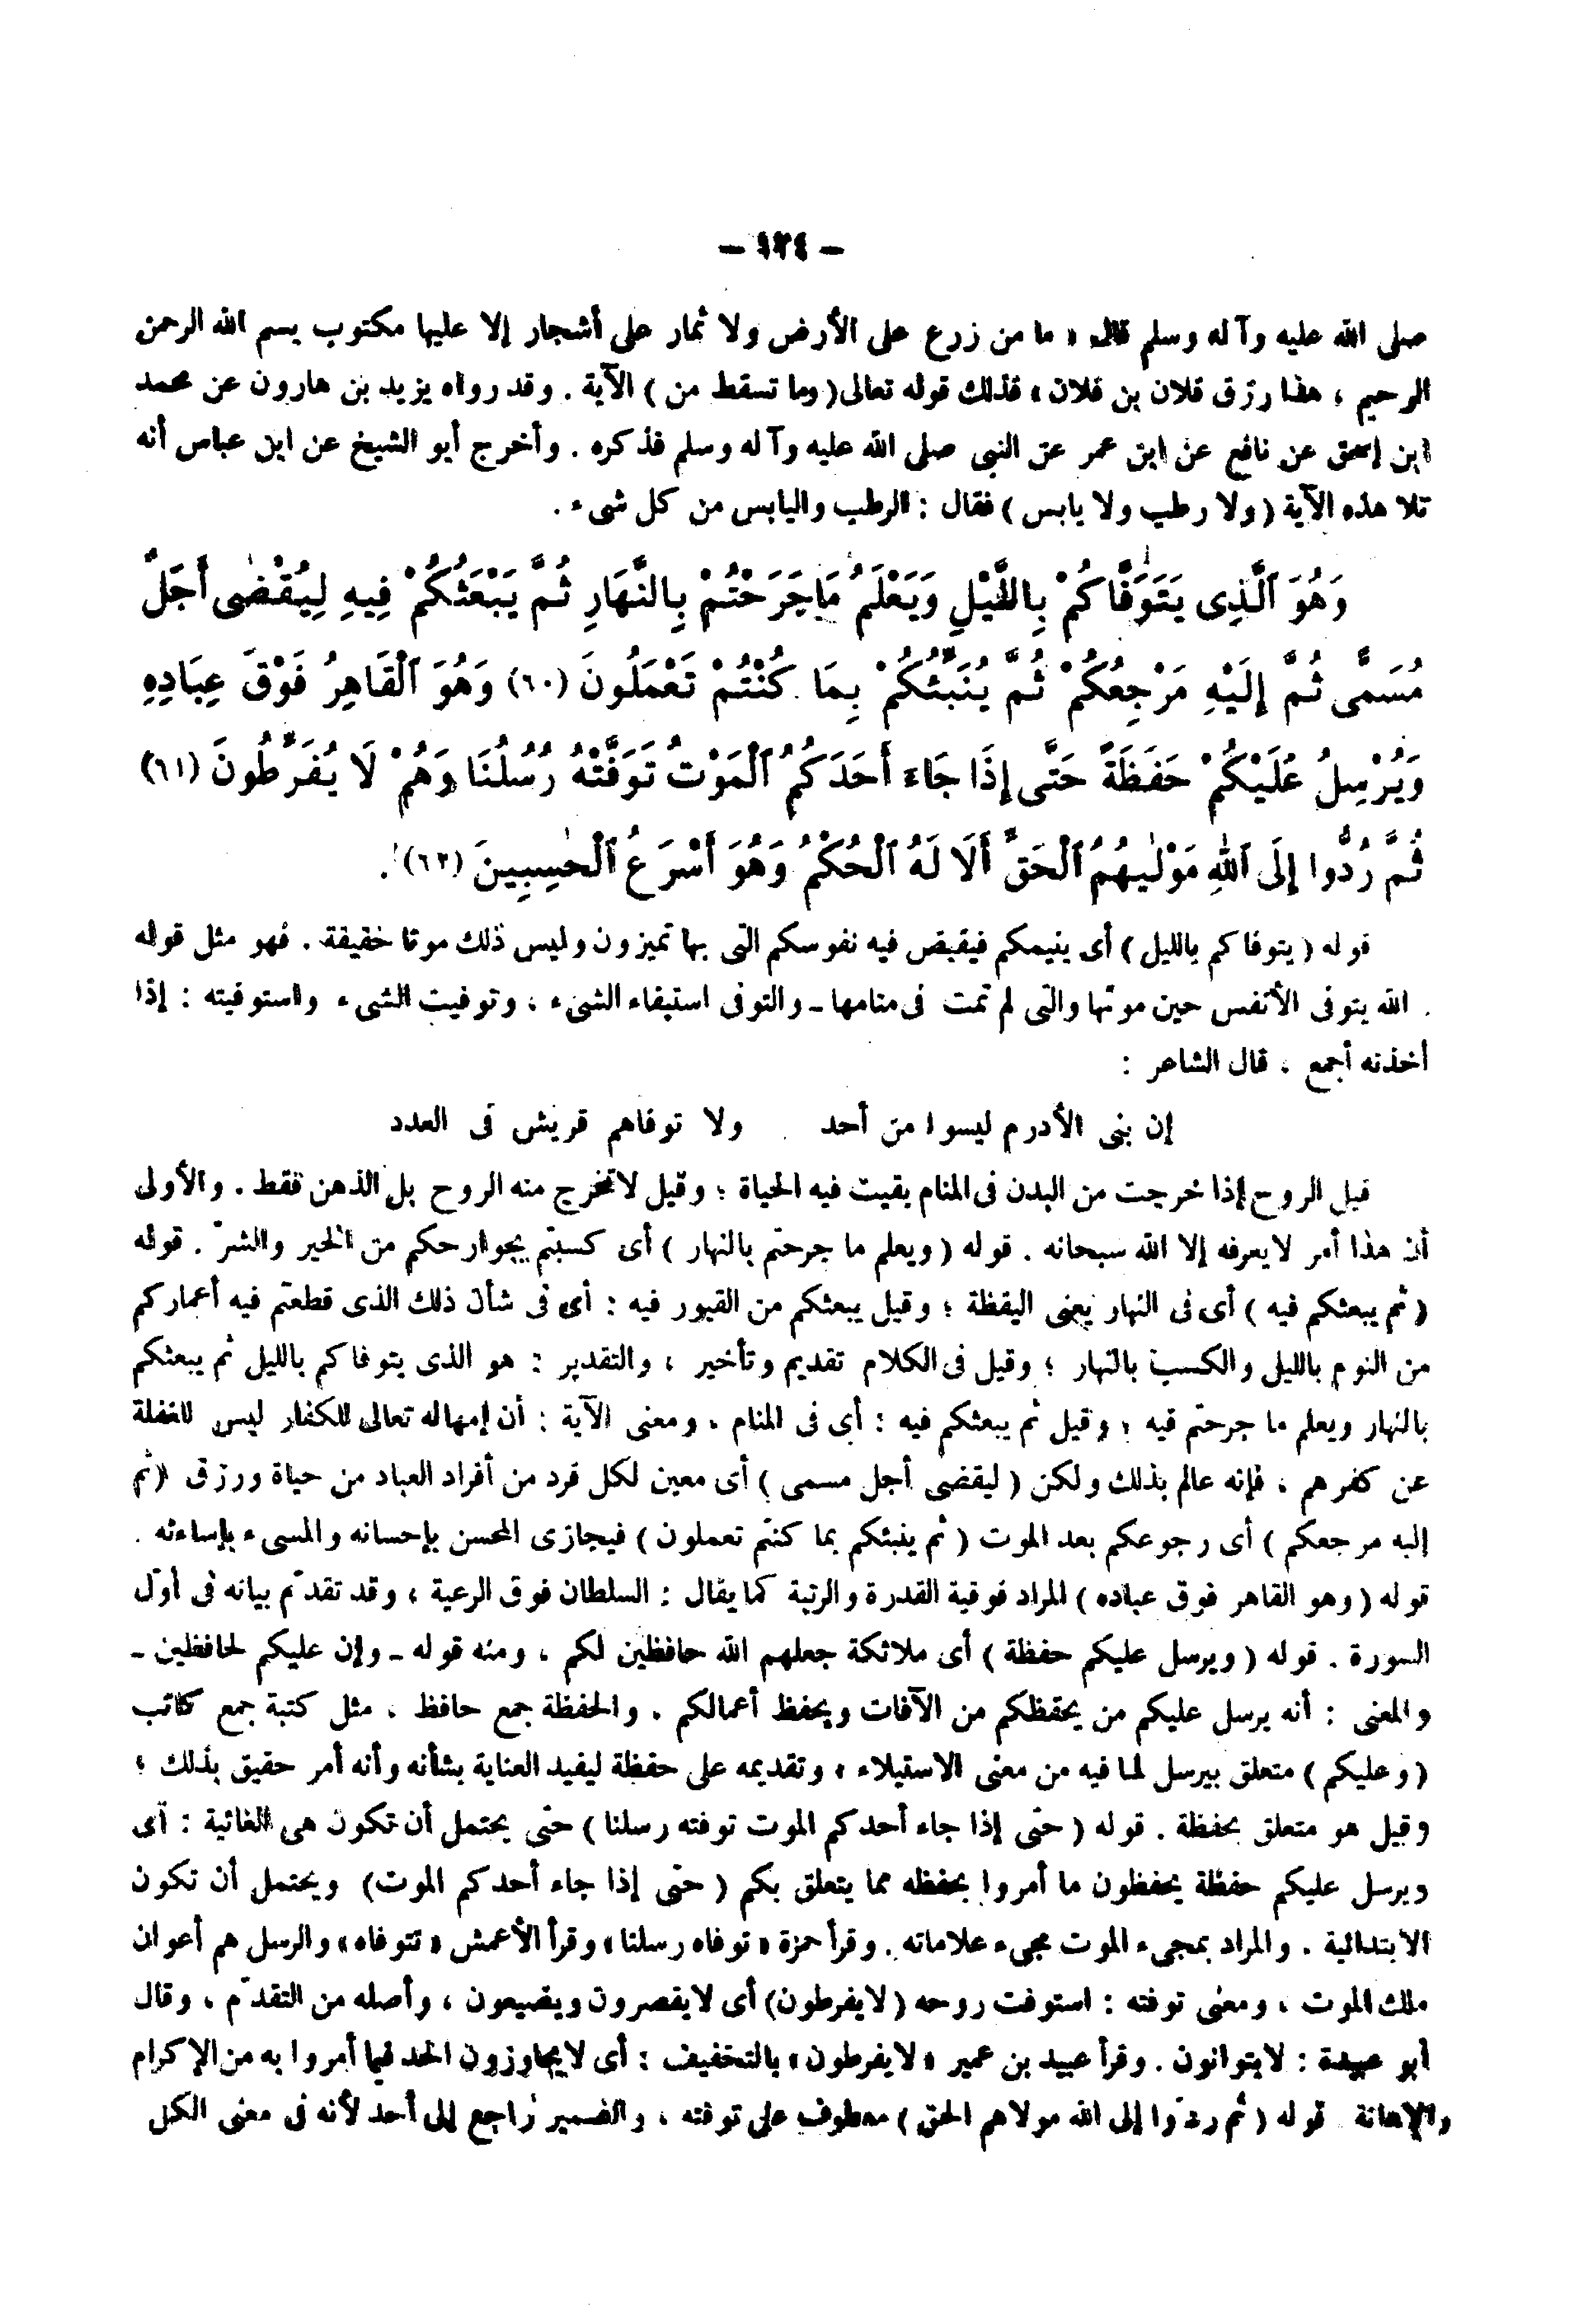 — ١٢٤ —
صلى الله عليه وآله وسلم قال « ما من زرع على الأرض ولا ثمار على أشجار إلا عليها مكتوب بسم الله الرحمن
الرحيم ، هذا رزق فلان بن فلان » فذلك قوله تعالى ( وما تسقط من ) الآية . وقد رواه يزيد بن هارون عن محمد
ابن إسحق عن نافع عن ابن عمر عن النبى صلى الله عليه وآله وسلم فذكره . وأخرج أبو الشيخ عن ابن عباس أنه
تلا هذه الآية ( ولا رطب ولا يابس ) فقال : الرطب واليابس من كل شىء .
وَهُوَ ٱلَّذِى يَتَوَفَّاكُمْ بِاللَّيْلِ وَيَعْلَمُ مَا جَرَحْتُمْ بِالنَّهَارِ ثُمَّ يَبْعَثُكُمْ فِيهِ لِيُقْضٰى أَجَلٌ
مُسَمًّى ثُمَّ إِلَيْهِ مَرْجِعُكُمْ ثُمَّ يُنَبِّئُكُمْ بِمَا كُنْتُمْ تَعْمَلُونَ (٦٠) وَهُوَ ٱلْقَاهِرُ فَوْقَ عِبَادِهِ
وَيُرْسِلُ عَلَيْكُمْ حَفَظَةً حَتَّى إِذَا جَاءَ أَحَدَكُمُ ٱلْمَوْتُ تَوَفَّتْهُ رُسُلُنَا وَهُمْ لَا يُفَرِّطُونَ (٦١)
ثُمَّ رُدُّوا إِلَى ٱللهِ مَوْلٰيهُمُ ٱلْحَقِّ أَلَا لَهُ ٱلْحُكْمُ وَهُوَ أَسْرَعُ ٱلْحٰسِبِينَ (٦٢) .
قوله ( يتوفاكم بالليل ) أى ينيمكم فيقبض فيه نفوسكم التى بها تميزون وليس ذلك موتا حقيقة . فهو مثل قوله
. الله يتوفى الأنفس حين موتها والتى لم تمت فى منامها ـ والتوفى استيفاء الشىء ، وتوفيت الشىء واستوفيته : إذا
أخذته أجمع ، قال الشاعر :
إن بنى الأدرم ليسوا من أحد ولا توفاهم قريش فى العدد
قيل الروح إذا خرجت من البدن فى المنام بقيت فيه الحياة ؛ وقيل لا تخرج منه الروح بل الذهن فقط . والأولى
أن هذا أمر لا يعرفه إلا الله سبحانه . قوله ( ويعلم ما جرحتم بالنهار ) أى كسبتم بجوارحكم من الخير والشرّ . قوله
( ثم يبعثكم فيه ) أى فى النهار يعنى اليقظة ؛ وقيل يبعثكم من القبور فيه : أى فى شأن ذلك الذى قطعتم فيه أعماركم
من النوم بالليل والكسب بالنهار ؛ وقيل فى الكلام تقديم وتأخير ، والتقدير : هو الذى يتوفاكم بالليل ثم يبعثكم
بالنهار ويعلم ما جرحتم فيه ؛ وقيل ثم يبعثكم فيه : أى فى المنام . ومعنى الآية : أن إمهاله تعالى للكفار ليس للغفلة
عن كفرهم ، فإنه عالم بذلك ولكن ( ليقضى أجل مسمى ) أى معين لكل فرد من أفراد العباد من حياة ورزق ( ثم
إليه مرجعكم ) أى رجوعكم بعد الموت ( ثم ينبئكم بما كنتم تعملون ) فيجازى المحسن بإحسانه والمسىء بإساءته .
قوله ( وهو القاهر فوق عباده ) المراد فوقية القدرة والرتبة كما يقال : السلطان فوق الرعية ، وقد تقدّم بيانه فى أوّل
السورة . قوله ( ويرسل عليكم حفظة ) أى ملائكة جعلهم الله حافظين لكم ، ومنه قوله ـ وإن عليكم لحافظين ـ
والمعنى : أنه يرسل عليكم من يحفظكم من الآفات ويحفظ أعمالكم . والحفظة جمع حافظ ، مثل كتبة جمع كاتب
( وعليكم ) متعلق بيرسل لما فيه من معنى الاستيلاء ، وتقديمه على حفظة ليفيد العناية بشأنه وأنه أمر حقيق بذلك ؛
وقيل هو متعلق بحفظة . قوله ( حتى إذا جاء أحدكم الموت توفته رسلنا ) حتى يحتمل أن تكون هى الغائية : أى
ويرسل عليكم حفظة يحفظون ما أمروا بحفظه مما يتعلق بكم ( حتى إذا جاء أحدكم الموت ) ويحتمل أن تكون
الابتدائية . والمراد بمجىء الموت مجىء علاماته . وقرأ حمزة « توفاه رسلنا » وقرأ الأعمش « تتوفاه » والرسل هم أعوان
ملك الموت ، ومعنى توفته : استوفت روحه ( لا يفرطون ) أى لا يقصرون ويضيعون ، وأصله من التقدّم ، وقال
أبو عبيدة : لا يتوانون . وقرأ عبيد بن عمير « لا يفرطون » بالتخفيف : أى لا يجاوزون الحد فيما أمروا به من الإكرام
والإهانة قوله ( ثم ردّوا إلى الله مولاهم الحق ) معطوف على توفته ، والضمير راجع إلى أحد لأنه فى معنى الكل